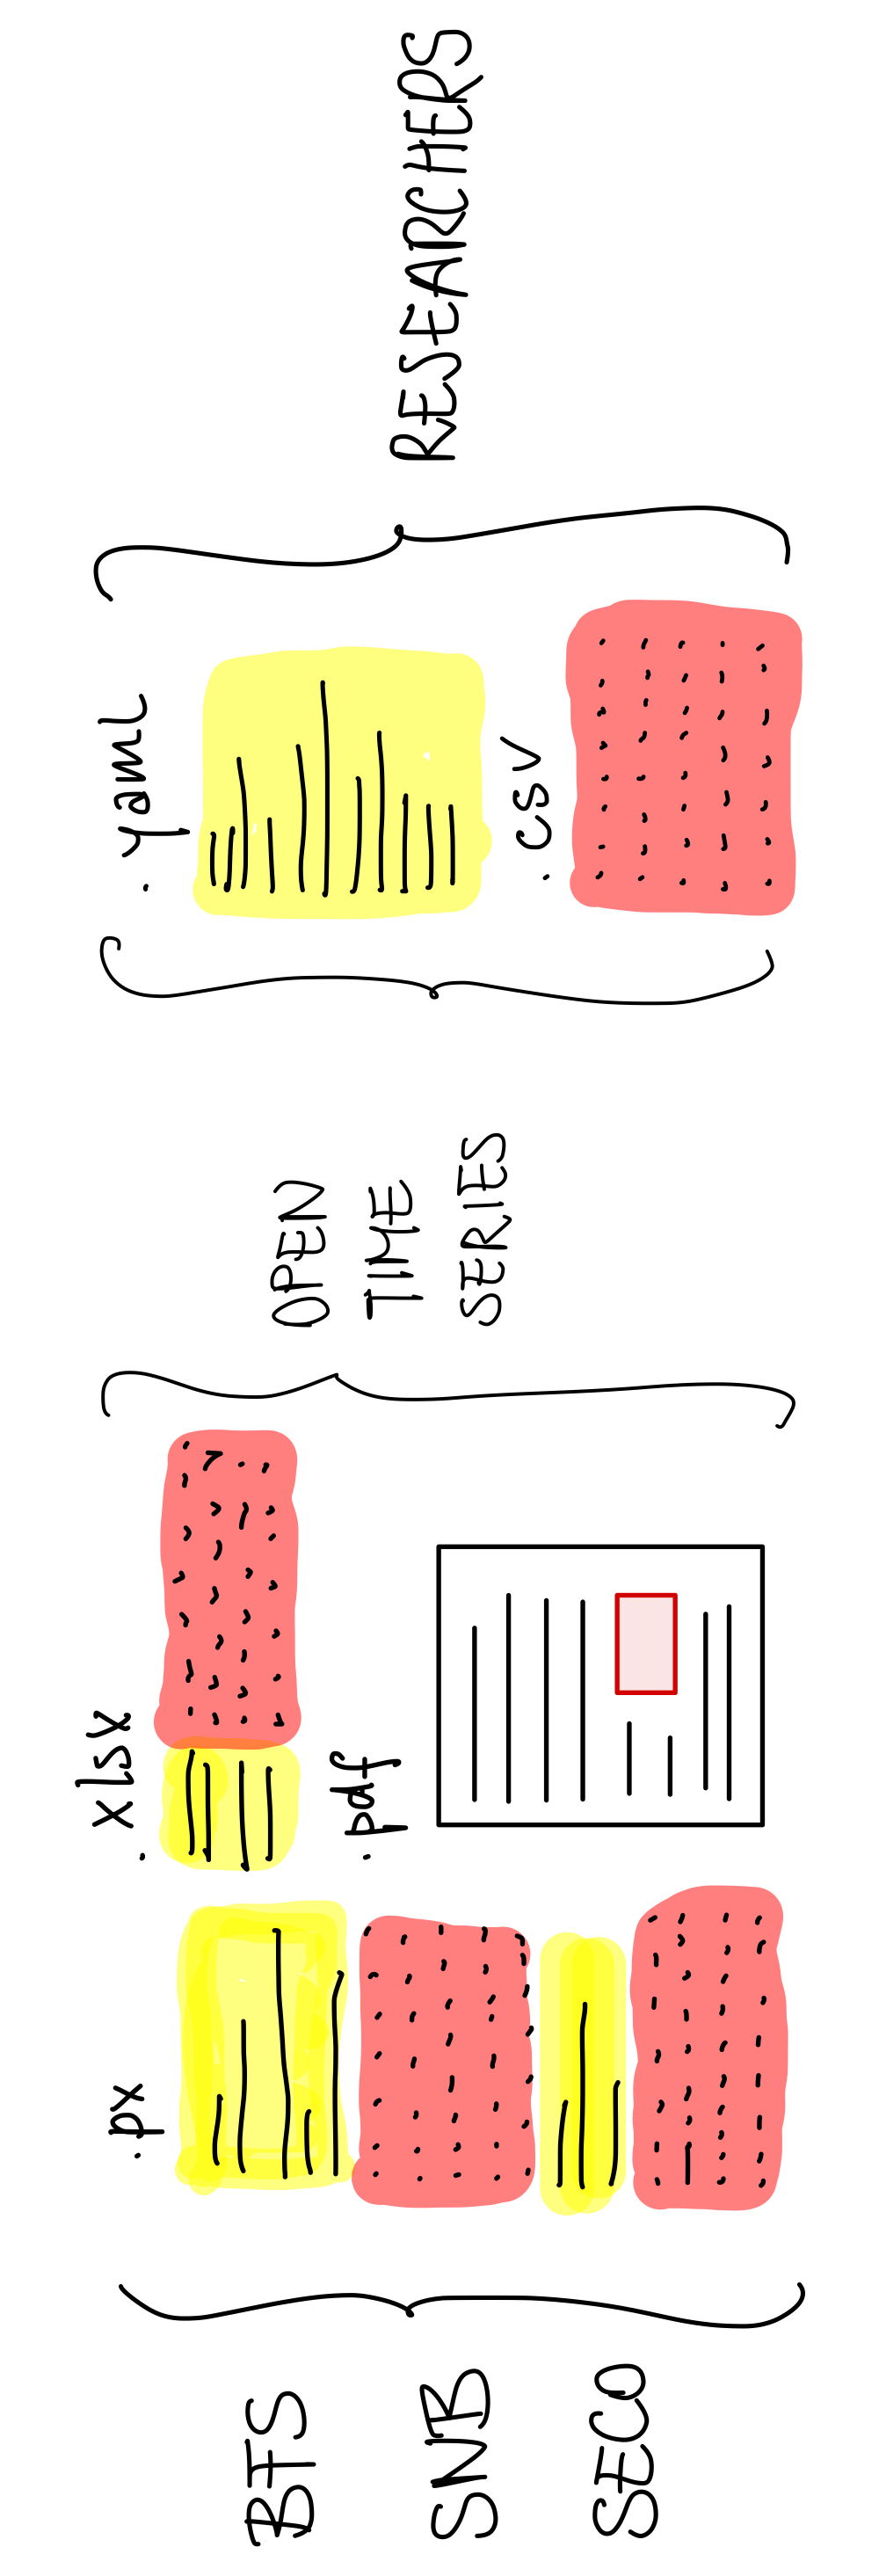 BFS
SNB
SECO
.px
.xlsx
.pdf
OPEN
TIME
SERIES
.yaml
.csv
RESEARCHERS